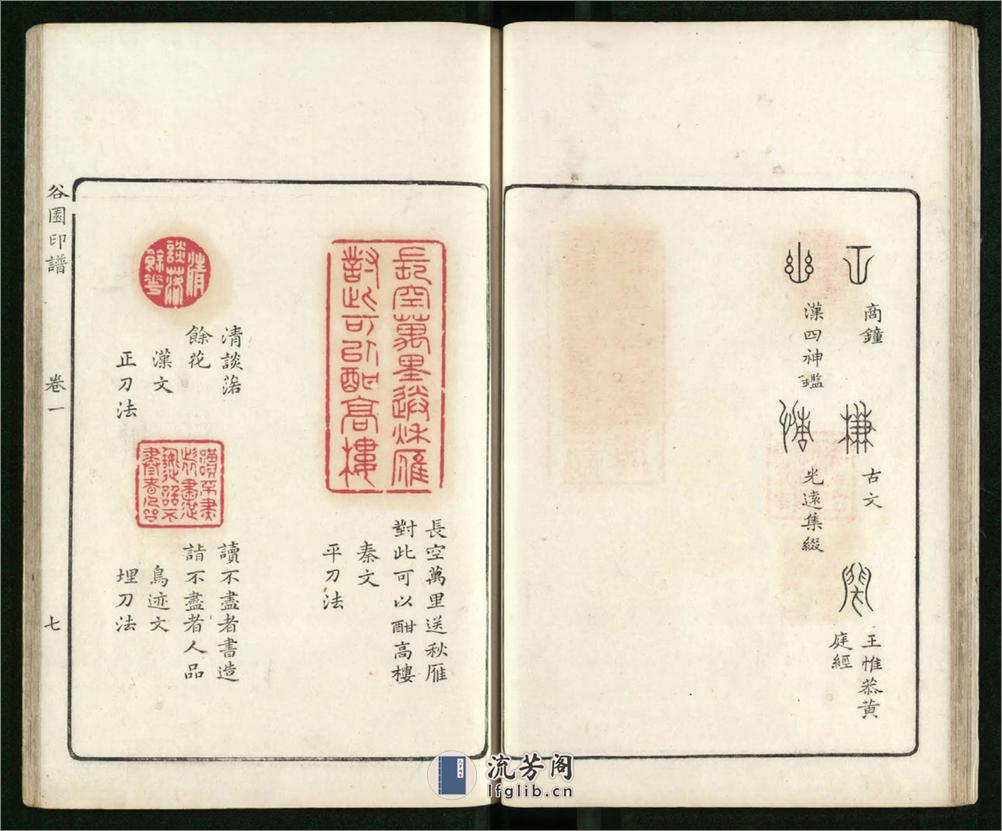 商鐘
古文
王惟恭黄
庭經
漢四神鑑
光遠集綴
長空萬里送秋雁
對此可以酣高樓
長空萬里送秋雁
對此可以酣高樓
秦文
平刀法
清
談落
餘花
清談落
餘花
漢文
正刀法
讀不盡者書造
詣不盡者人品
鳥迹文
埋刀法
谷園印譜
卷一
七
流芳阁
lfglib.cn